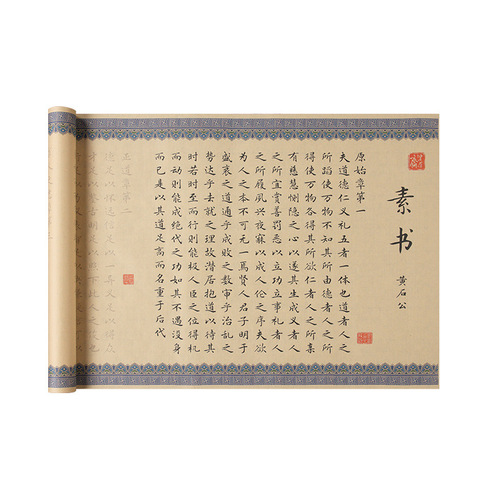 素书
黄石公
原始章第一
夫道德仁义礼五者一体也道者人之
所蹈使万物不知其所由德者人之所
得使万物各得其所欲仁者人之所亲
有慈慧恻隐之心以遂其生成义者人
之所宜赏善罚恶以立功立事礼者人
之所履夙兴夜寐以成人伦之序夫欲
为人之本不可无一焉贤人君子明于
盛衰之道通乎成败之数审乎治乱之
势达乎去就之理故潜居抱道以待其
时若时至而行则能极人臣之位得机
而动则能成绝代之功如其不遇没身
而已是以其道足高而名重于后代
正道章第二
德足以怀远信足以一异义足以得众